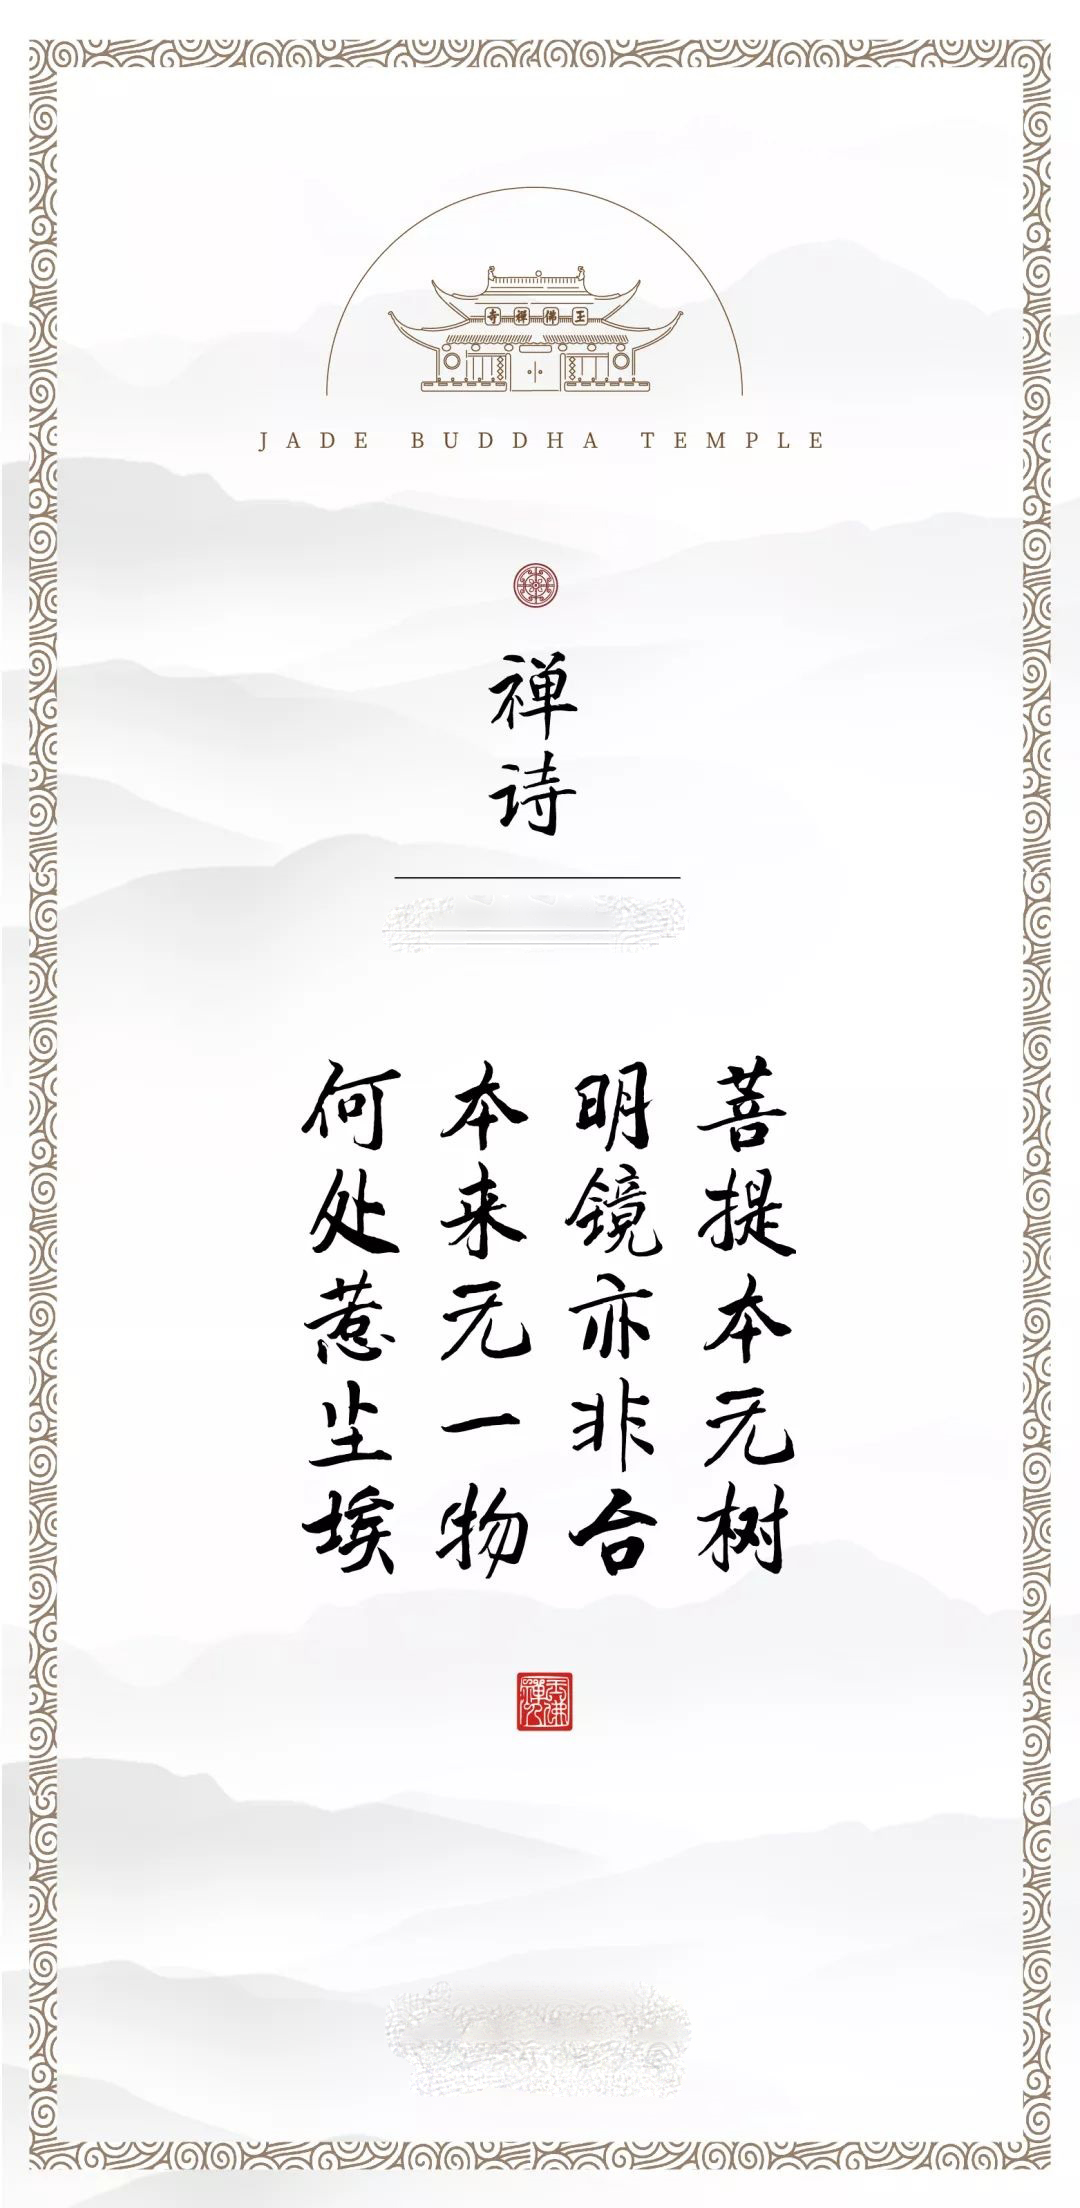 玉佛禅寺
JADE BUDDHA TEMPLE
禅诗
菩提本无树
明镜亦非台
本来无一物
何处惹尘埃